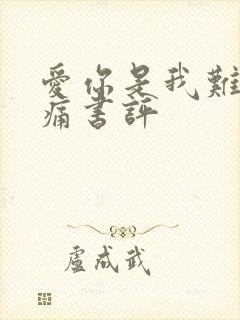 愛你是我難
痛書評
盧成武